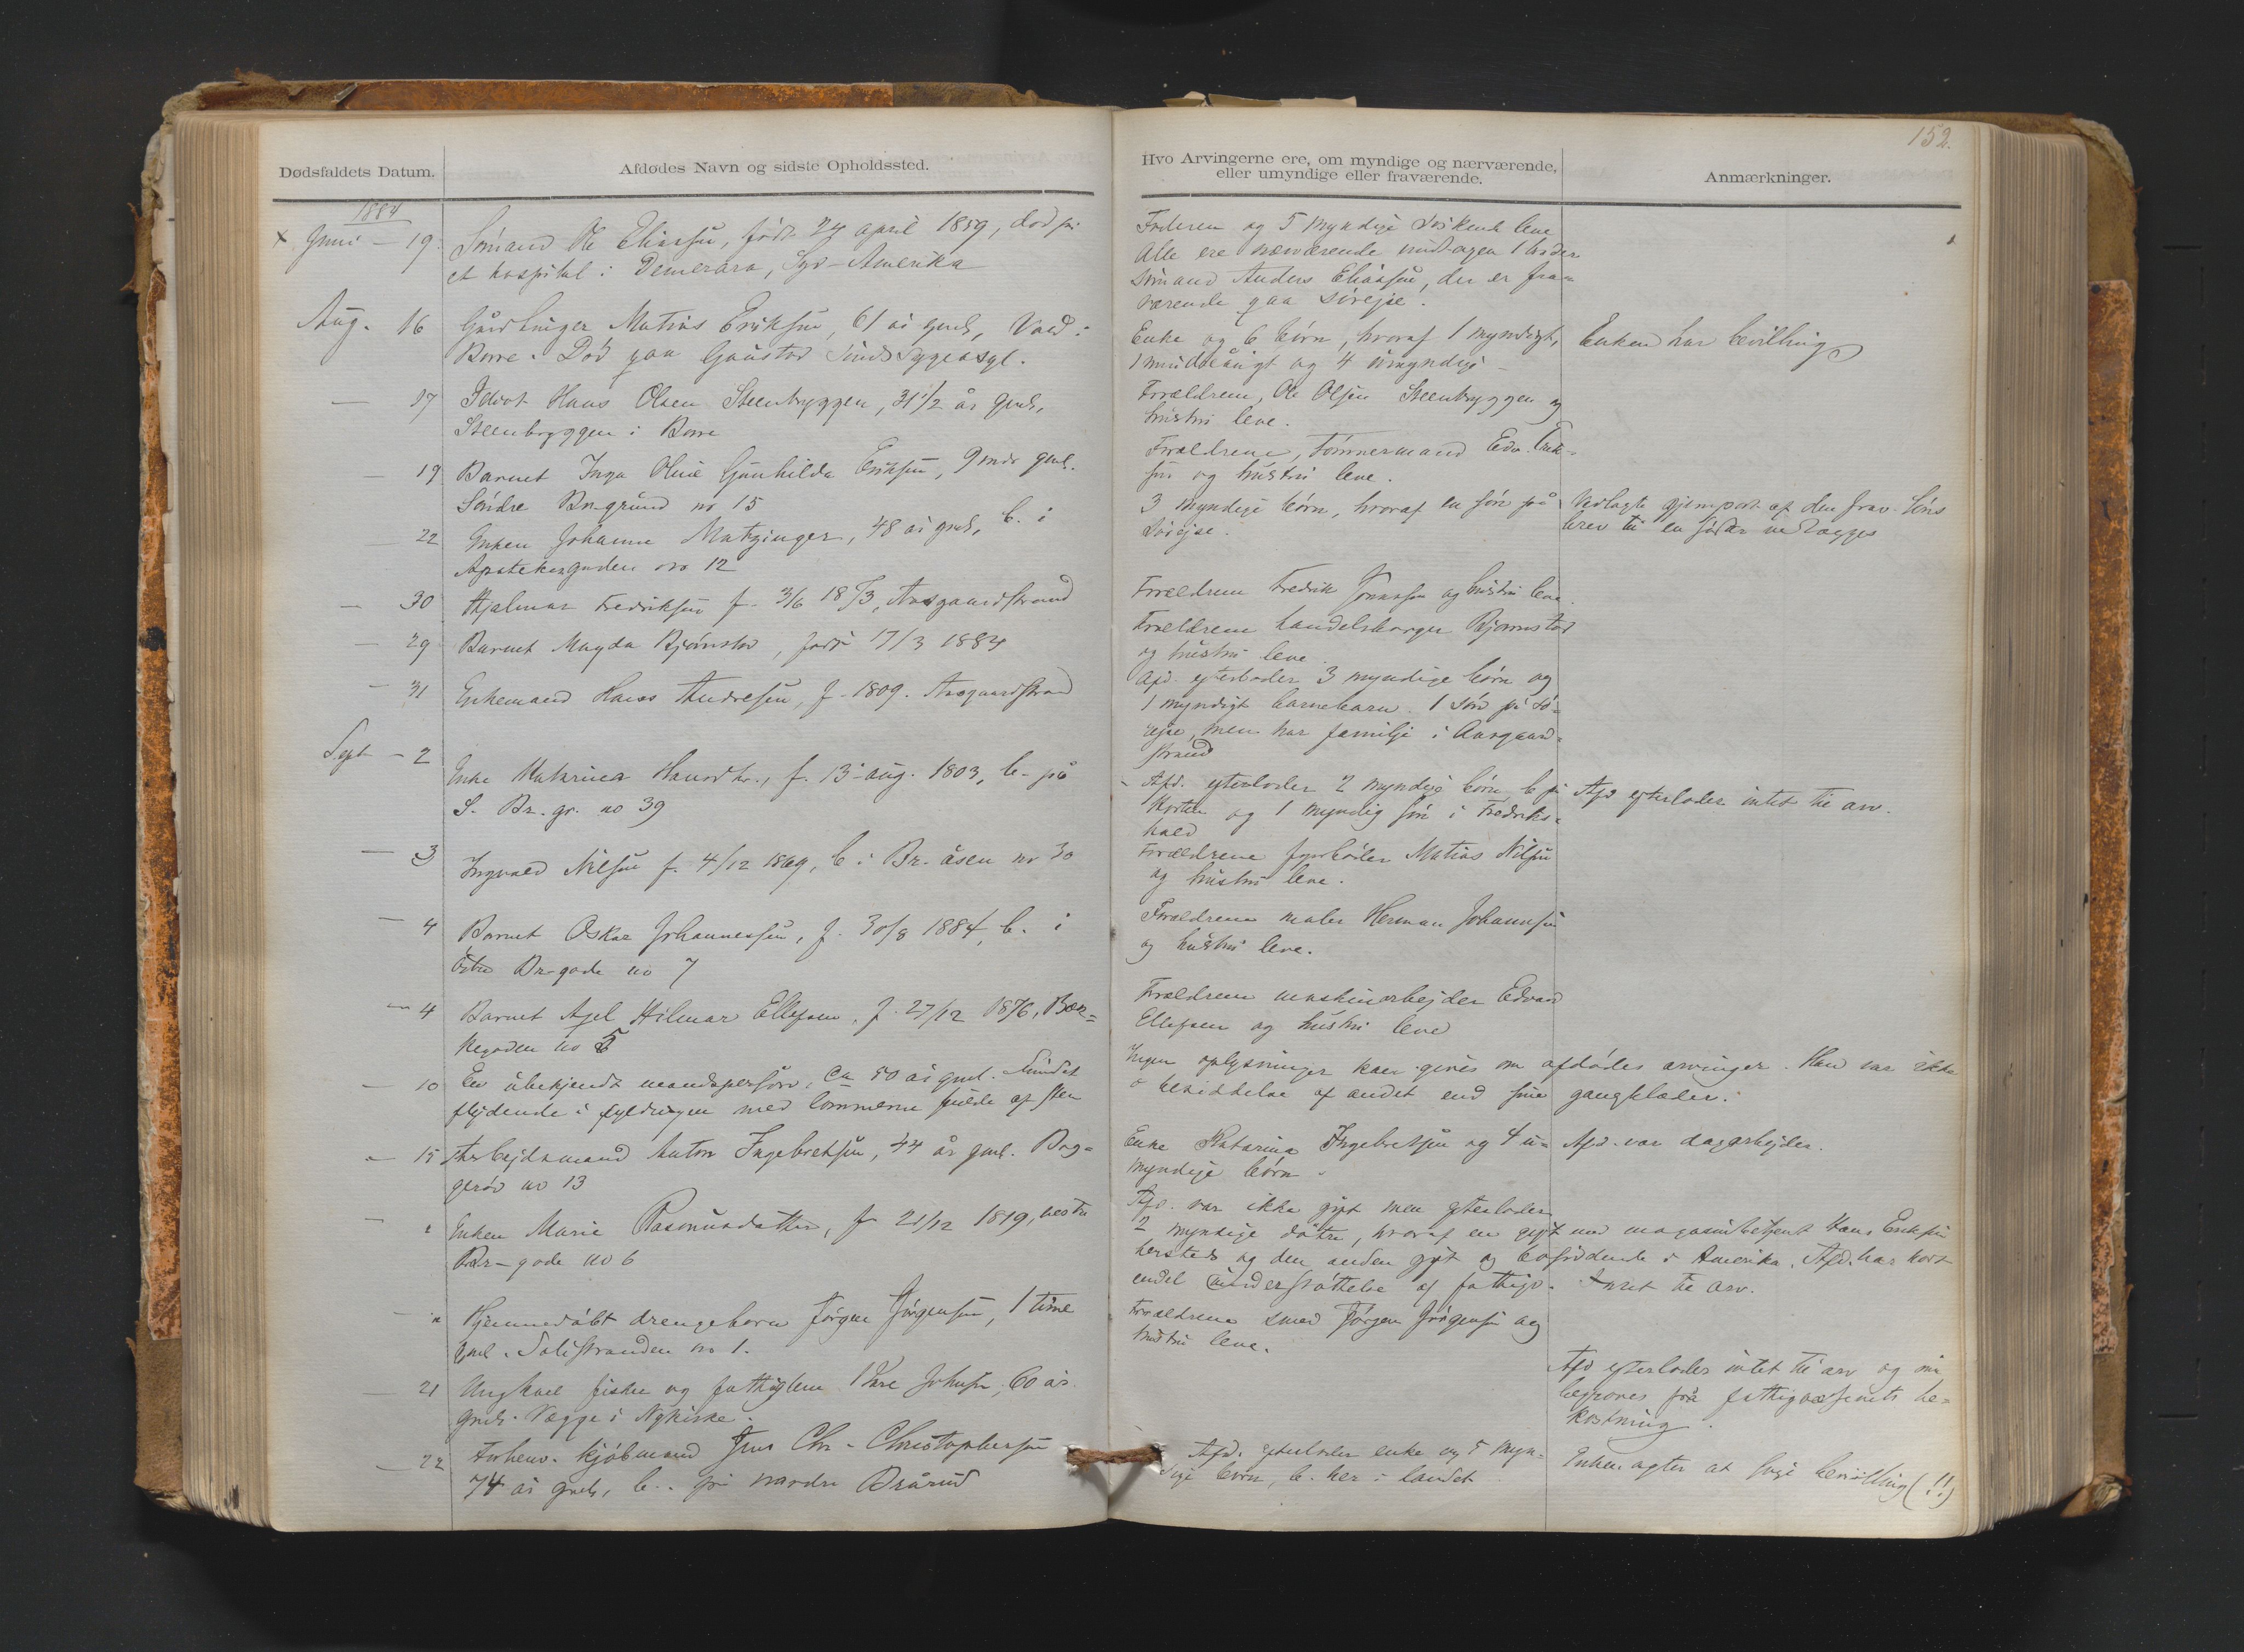 152.
Dødsfaldets Datum.
Afdødes Navn og sidste Opholdssted.
Hvo Arvingerne ere, om myndige og nærværende,
eller umyndige eller fraværende.
Anmærkninger.
1884
x Juni - 19.
Sömand Ole Eliassen, födt 24 april 1859, död på
et hospital i Demerara, Syd-Amerika
Faderen og 5 myndige Söskende leve
Alle ere nærværende undtagen 1 broder
sömand Anders Eliassen, der er fra=
værende paa söreise.
Aug. 16
Matias Eriksen, 61 år gml,
Borre. Död paa Gaustad Sindssygeasyl.
Enke og 6 börn, hvoraf 1 myndigt,
1 mindreårigt og 4 umyndige
Enken har bevilling
— 17
Idiot Hans Olsen Steenbryggen, 31 1/2 år gml,
Steenbryggen i Borre
Forældrene, Ole Olsen Steenbryggen og
hustru leve.
— 19
Barnet Inga Oline Gunhilda Eriksen, 9 mdr gml.
Söndre Br.grund no 15
Forældrene, Tömmermand Edv. Erik=
sen og hustru leve.
— 22
Enken Johanne Matzinger, 48 år gml, b. i
Apotekergaden no 12
3 myndige börn, hvoraf en sön på
Söreise.
Vedlagte gjenpart af den frav. Söns
brev til en söster vedlægges
— 30
Hjalmar Fredriksen f. 3/6 1873, Aasgaardstrand
Forældrene Fredrik og hustru leve.
— 29
Barnet Magda Björnstad, född 17/3 1884
Forældrene handelsborger Bjørnstad
og hustru leve.
— 31
Enkemand Hans Andresen, f. 1809. Aasgaardstrand
Afd. efterlader 3 myndige börn og
1 myndigt barnebarn. 1 Sön på sö=
reise, men har familje i Aasgaard=
strand
Sept - 2
Enke Katarina Hansdtr., f. 13 aug. 1803, b. på
S. Br. gr. no 39
Afd. efterlader 2 myndige börn b. på
Horten og 1 myndig sön i Fredriks=
hald
Afd efterlader intet til arv.
— 3
Ingvald Nilsen f. 4/12 1869, b. i Br. åsen no 30
Forældrene fyrböder Matias Nilsen
og hustru leve.
— 4
Barnet Oskar Johannessen, f. 30/8 1884, b. i
Östre Br-gade no 7
Forældrene maler Herman Johannsen
og hustru leve.
— 4
Barnet Axel Hilmar Ellefsen, f. 27/12 1876, Bæk=
kegaden no 5
Forældrene maskinarbejder Edvard
Ellefsen og hustru leve
— 10
En übekjendt mandsperson, ca 50 år gml. Fundet
flydende i fyldingen med lommerne fulde af sten
Ingen oplysninger kan gives om afdødes arvinger. Han var ikke
i besiddelse af andet end sine gangklæder.
— 15
Arbejdsmand Anton Ingebretsen, 44 år gml.
no 13
Enke Katarina Ingebretsen og 4 u=
myndige börn
Afd. var dagarbejder.
Enken Marie Rasmusdatter, f. 21/12 1819, vestre
Br-gade no 6
Afd. var ikke gift men efterlader
2 myndige dötre, hvoraf en gift med magasinbetjent Hans Eriksen
hersteds og den anden gift og bosiddende i Amerika. Afd. har havt
endel understöttelse af fattigv. Intet til arv.
Hjemmedöbt drengebarn Jörgen Jörgensen, 1 time
gml. no 1.
Forældrene smed Jörgen Jörgensen og
hustru leve.
— 21
Ungkarl fisker og fattiglem Johnsen, 60 år
gml. i Nykirke.
Afd efterlader intet til arv og må
begraves på fattigvæsenets be=
kostning.
— 22
Forhenv. kjöbmand Jens Chr. Christophersen
74 år gml, b. på nordre Brårud
Afd. efterlader enke og 5 myn=
dige börn, b. her i landet
Enken agter at söge bevilling (!!)